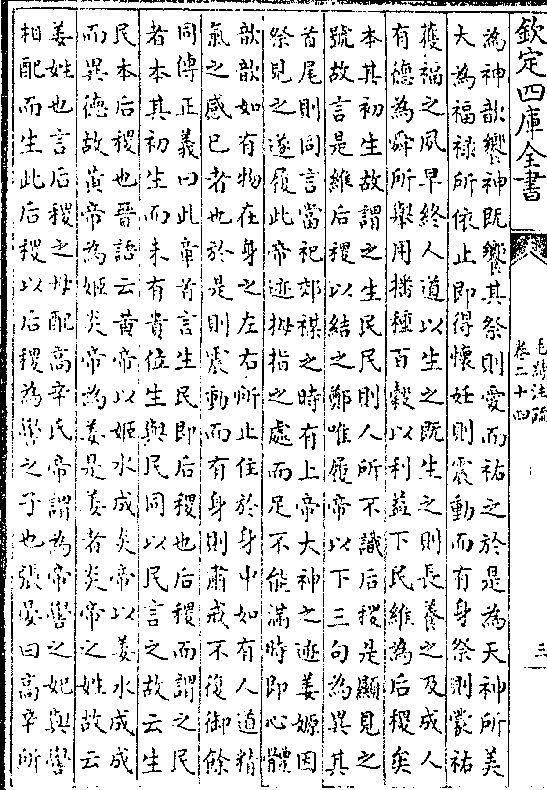 欽定四庫全書
毛詩注疏
卷二十四
三
為神歆饗神既饗其祭則愛而祐之於是為天神所美
大為福禄所依止即得懷妊則震動而有身祭則蒙祐
獲福之夙早終人道以生之既生之則長養之及成人
有德為舜所舉用播種百穀以利益下民維為后稷矣
本其初生故謂之生民民則人所不識后稷是顯見之
號故言是維后稷以結之鄭唯履帝以下三句為異其
首尾則同言當祀郊禖之時有上帝大神之迹姜嫄因
祭見之遂履此帝迹拇指之處而足不能滿時即心體
歆歆如有物在身之左右所止住於身中如有人道精
氣之感已者也於是則震動而有身則肅戒不復御餘
同傳正義曰此章首言生民即后稷也后稷而謂之民
者本其初生而未有貴位生與民同以民言之故云生
民本后稷也晉語云黄帝以姬水成炎帝以姜水成成
而異德故黄帝為姬炎帝為姜是姜者炎帝之姓故云
姜姓也言后稷之母配高辛氏帝謂為帝嚳之妃與嚳
相配而生此后稷以后稷為嚳之子也張晏曰高辛所